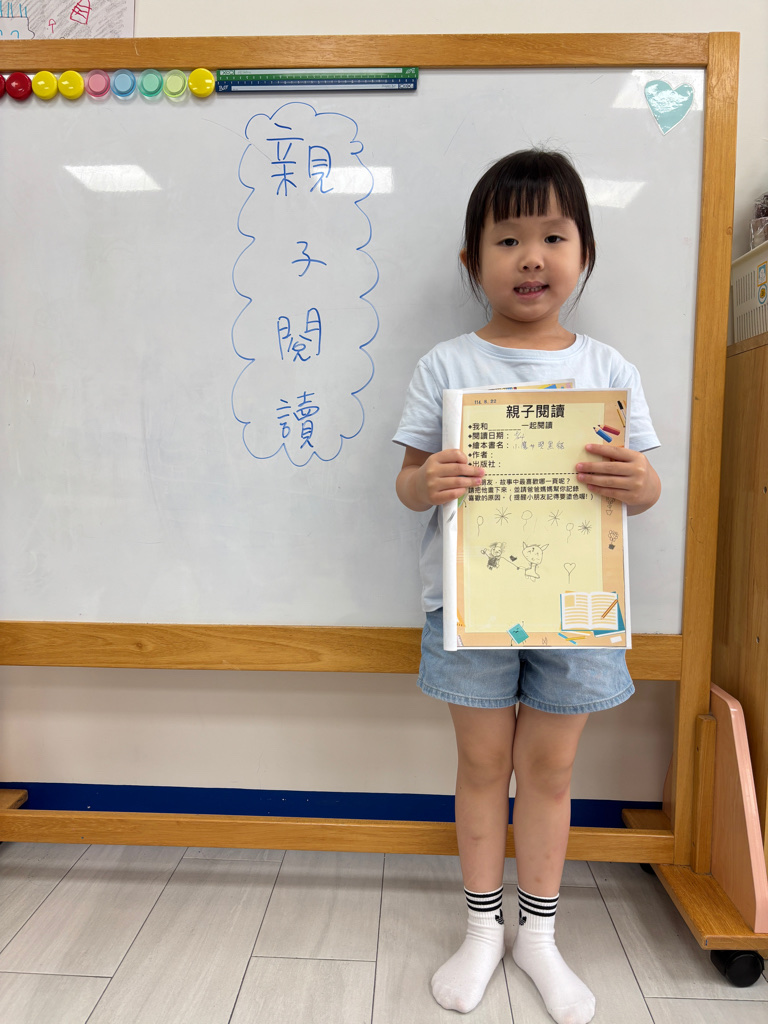 親
子
閱
讀
親子閱讀
●我和______一起閱讀
●閱讀日期：
●繪本書名：小魔女
●作者：
●出版社：
朋友，故事中最喜歡哪一頁呢？
請把他畫下來，並請爸爸媽媽幫你記錄
喜歡的原因。（提醒小朋友記得要塗色喔！）